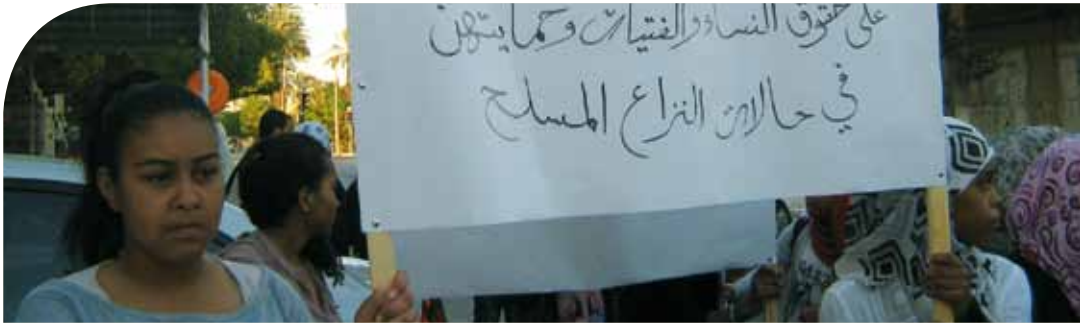 على حقوق النساء والفتيات وحمايتهن
في حالات النزاع المسلح